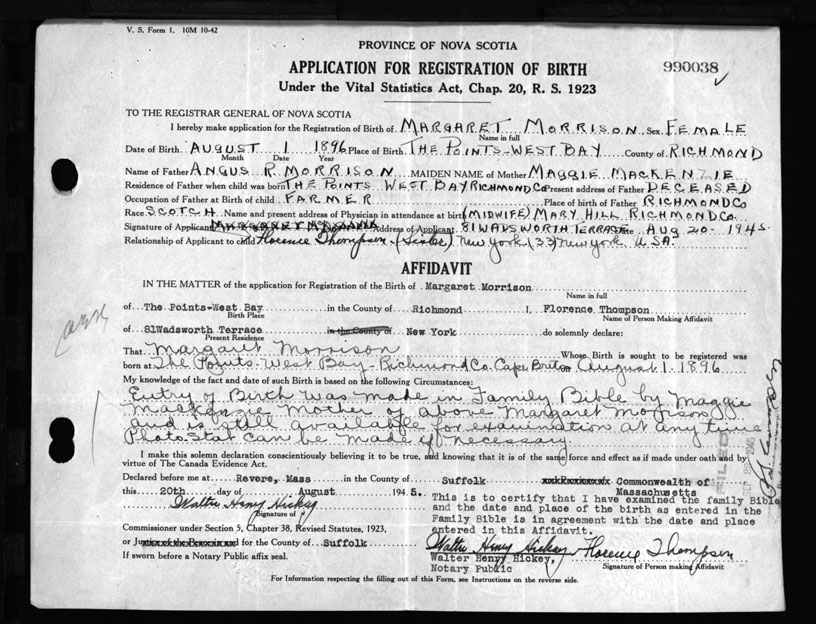 V. S. Form 1. 10M 10-42
PROVINCE OF NOVA SCOTIA
APPLICATION FOR REGISTRATION OF BIRTH
990038
Under the Vital Statistics Act, Chap. 20, R. S. 1923
TO THE REGISTRAR GENERAL OF NOVA SCOTIA
I hereby make application for the Registration of Birth of MARGARET MORRISON Sex FEMALE
Name in full
Date of Birth AUGUST 1 1896 Place of Birth THE POINTS-WEST BAY County of RICHMOND
Month Date Year
Name of Father ANGUS R. MORRISON MAIDEN NAME of Mother MAGGIE MACKENZIE
Residence of Father when child was born THE POINTS WEST BAY RICHMOND Co Present address of Father DECEASED
Occupation of Father at Birth of child FARMER Place of birth of Father RICHMOND Co
Race SCOTCH Name and present address of Physician in attendance at birth (MIDWIFE) MARY HILL RICHMOND Co.
Signature of Applicant Address of Applicant 81 WADSWORTH TERRACE Date AUG 20 - 1945
Relationship of Applicant to child Florence Thompson (Sister) New York (33) New York U.S.A.
AFFIDAVIT
IN THE MATTER of the application for Registration of the Birth of Margaret Morrison
Name in full
of The Points-West Bay in the County of Richmond I, Florence Thompson
Birth Place Name of Person Making Affidavit
of 81Wadsworth Terrace in the County of New York do solemnly declare:
Present Residence
That Margaret Morrison Whose Birth is sought to be registered was
born at The Points-West Bay-Richmond Co. Cape Breton August 1. 1896
My knowledge of the fact and date of such Birth is based on the following Circumstances:
Entry of Birth was made in Family Bible by Maggie
Mackenzie Mother of above Margaret Morrison
and is still available for examination at any time
PhotoStat can be made if necessary
I make this solemn declaration conscientiously believing it to be true, and knowing that it is of the same force and effect as if made under oath and by
virtue of The Canada Evidence Act.
Declared before me at Revere, Mass in the County of Suffolk Commonwealth of
Massachusetts
this 20th day of August 1945.
This is to certify that I have examined the family Bible
and the date and place of the birth as entered in the
Family Bible is in agreement with the date and place
entered in this Affidavit.
Walter Henry Hickey
Signature of
Commissioner under Section 5, Chapter 38, Revised Statutes, 1923,
or Justice of the Peace in and for the County of Suffolk
If sworn before a Notary Public affix seal.
Walter Henry Hickey Florence Thompson
Walter Henry Hickey, Signature of Person making Affidavit
Notary Public
For Information respecting the filling out of this Form, see Instructions on the reverse side.
FILED